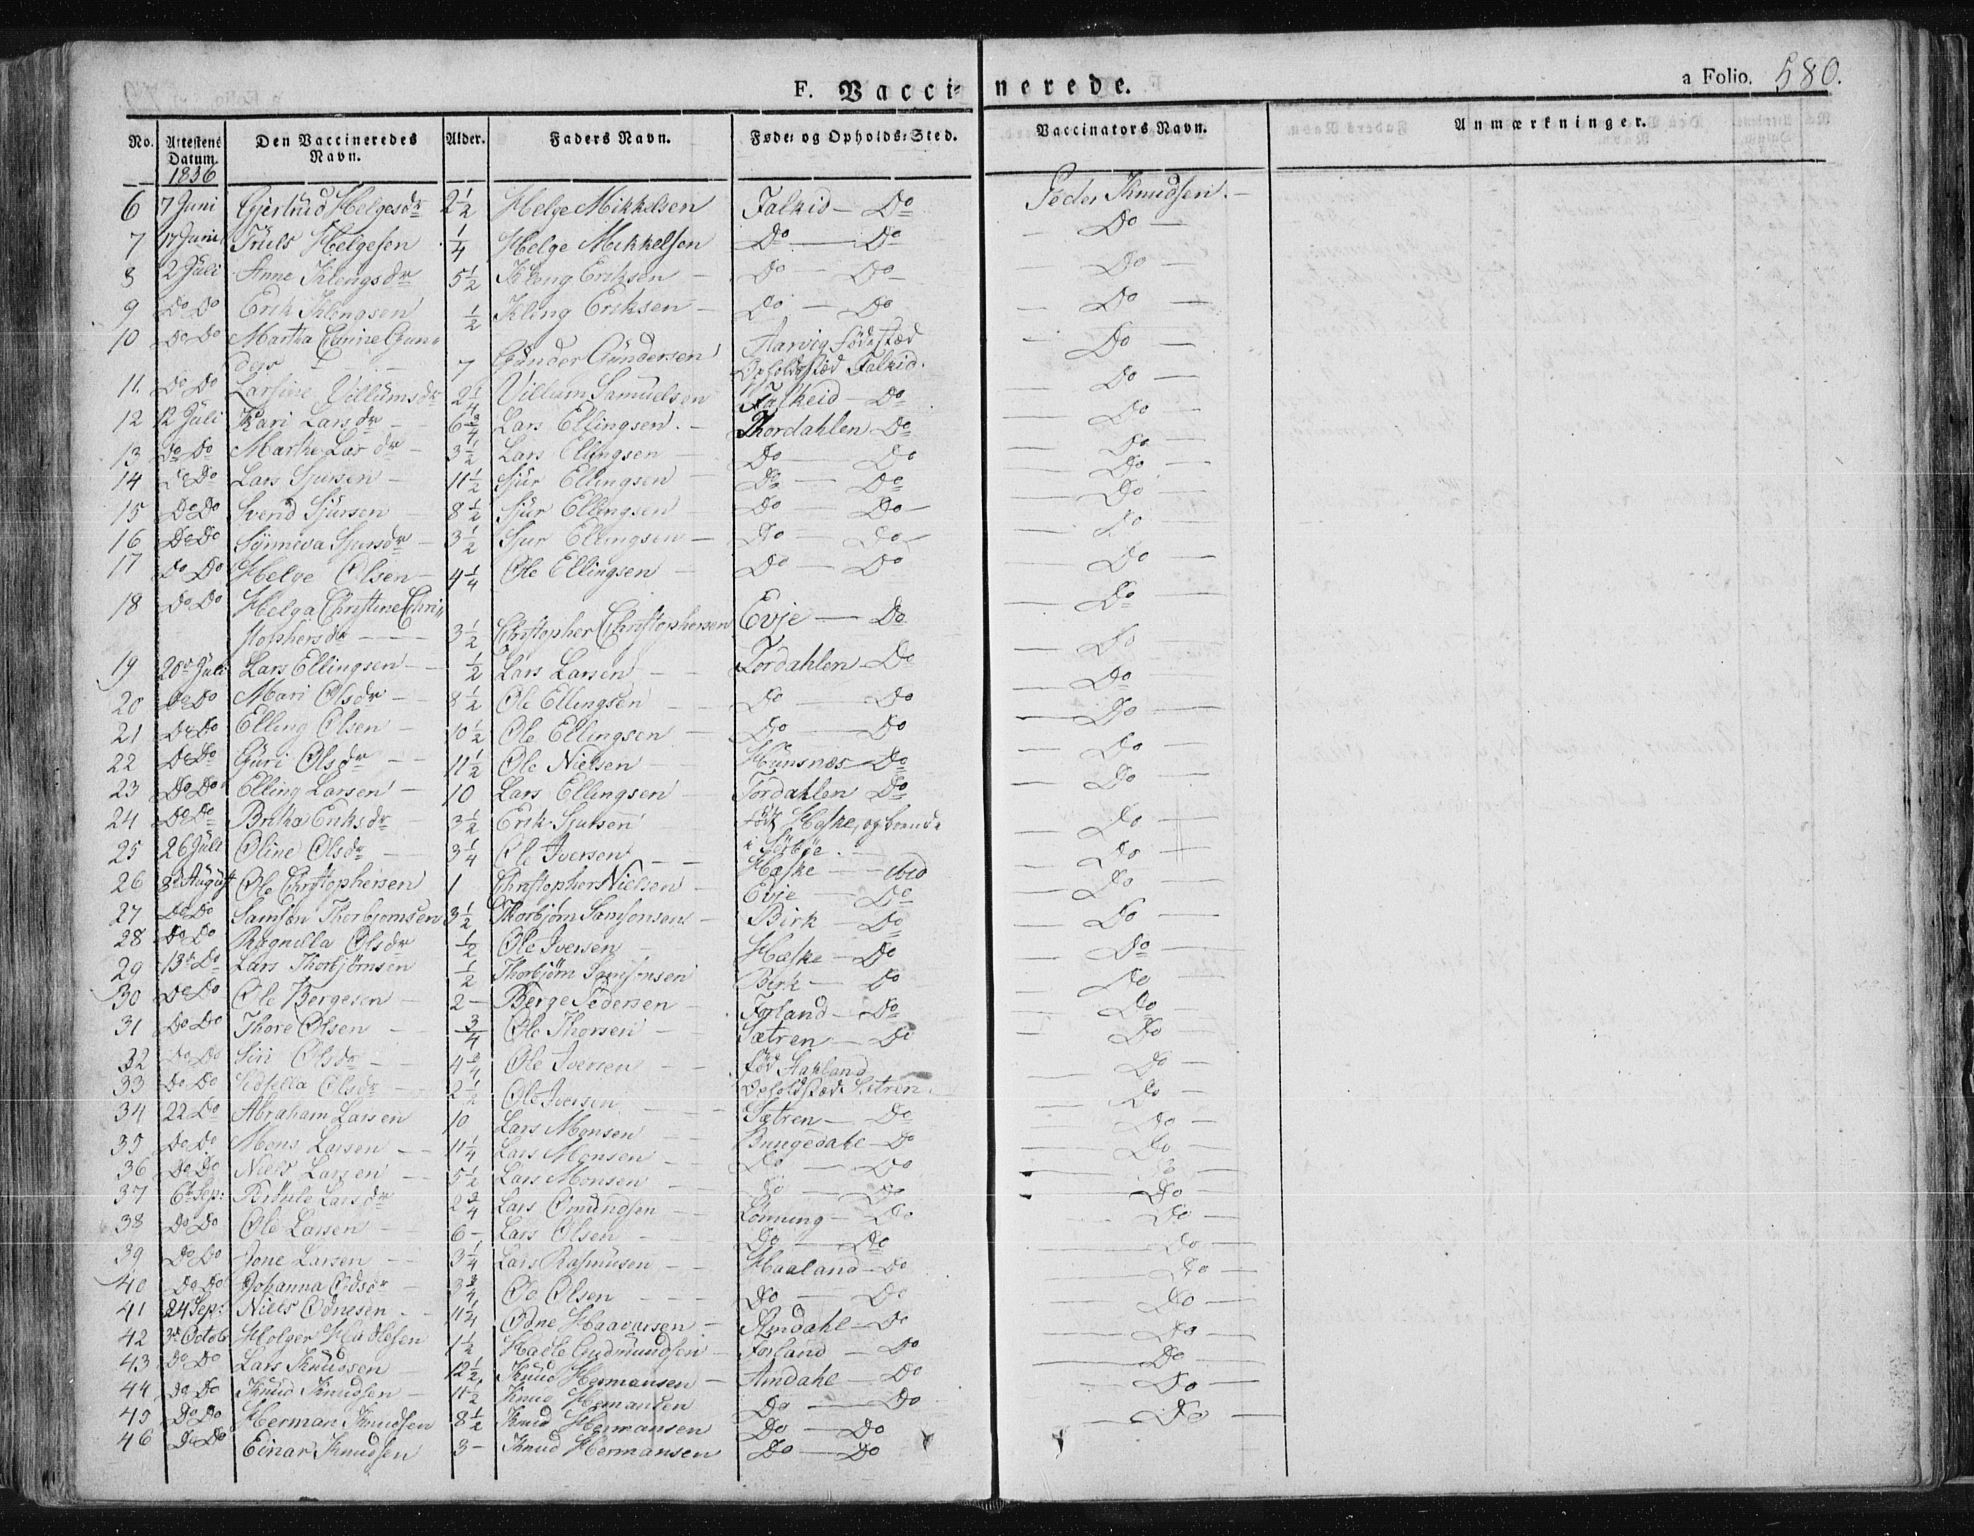 F. Vaccinerede. a Folio. 580.
No. Attestens Datum. Den Vaccineredes Navn. Alder. Faders Navn. Føde- og Opholds-Sted. Vaccinators Navn. Anmærkninger.
1836
6 7 Juni Gjertrud Helgesdr 2 1/2 Helge Mikkelsen Falkid - Do Peder Knudsen. -
7 17 Juni Truls Helgesen 1/4 Helge Mikkelsen Do - Do - Do -
8 2 Juli Anne Klengsdr 5 1/2 Kleng Eriksen - Do - Do - Do -
9 Do Do Erik Klengsen 1/2 Kling Eriksen - Do - Do - Do -
10 Do Do Martha Gun- Aarvig Fødested - Do -
ders 7 Gunder Gundersen Opholdsted Falkid.
11. Do Do Larsine Villumsdr 2 1/4 Villum Samuelsen Falkeid - Do - Do -
12 12 Juli Kari Larsdr - 6 3/4 Lars Ellingsen. - Thordahlen Do - Do -
13 Do Do Marthe Lars dr - 3 1/2 Lars Ellingsen - Do - Do - Do -
14 Do Do Lars Sjursen - 11 1/2 Sjur Ellingsen - Do - Do - Do -
15 Do Do Svend Sjursen 8 1/2 Sjur Ellingsen Do - Do - - Do -
16 Do Do Synneva Sjursdr - 3 1/2 Sjur Ellingsen - Do - Do - - Do -
17 Do Do Helge Olsen - 4 1/4 Ole Ellingsen - Do - Do - Do -
18 Do Do Helga Christine Chri- - Do -
stophersdr - 3 1/2 Christopher Christophersen Evje - Do
19 20de Juli Lars Ellingsen - 1/2 Lars Larsen - Tordahlen - Do - Do -
20 Do Do Mari Olsdr - 8 1/2 Ole Ellingsen - Do - Do - Do -
21 Do Do Elling Olsen - 10 1/2 Ole Ellingsen - Do - Do - Do -
22 Do Do Guri Olsdr - 11 1/2 Ole Nielsen - Hunsnæs - Do - Do -
23 Do Do Elling Larsen - 10 Lars Ellingsen - Tordahlen Do - Do -
24 Do Do Britha Eriksdr - 3 1/2 Erik Sjursen Hæske, og - Do -
25 26 Juli Oline Olsdr - 3 1/4 Ole Iversen - Hæske - ibid - Do -
26 8de August Ole Christophersen 1 Christopher Nielsen - Evje - Do - Do -
27 Do Do Samson Thorbjørnsen 3 1/2 Thorbjørn Samsonsen - Birk - Do - Do -
28 Do Do Ragnilla Olsdr 1/2 Ole Iversen - Hæske - Do - Do -
29 13de Do Lars Thorbjørnsen 1/2 Thorbjørn Samsonsen Birk - Do - Do -
30 Do Do Ole Bergesen - 2 - Berge Pedersen - Forland - Do - Do -
31 Do Do Thore Olsen - 3/4 Ole Thorsen - Sætren - Do - Do
32 Do Do Siri Olsdr - 4 3/4 Ole Iversen - - Do -
33 Do Do Olsdr - 2 1/2 Ole Iversen Opholdsted Sætren - Do -
34 22 Do Abraham Larsen 10 Lars Monsen Sætren - Do - Do -
35 Do Do Mons Larsen - 11 1/4 Lars Monsen - Do - Do -
36 Do Do Niels Larsen - 5 1/2 Lars Monsen - Do - Do - Do -
37 6te Sep: Larsdr 2 3/4 Lars Omundsen - Do - Do - Do -
38 Do Do Ole Larsen - 6 - Lars Olsen - Lønning - Do - Do -
39 Do Do Jone Larsen - 3 1/4 Lars Rasmusen - Do - Do - Do -
40 Do Do Johanna Olsdr - 3 3/4 Olsen - Haaland - Do - Do -
41 24 Sep: Niels Odnesen - 11 1/4 Odne Haavarsen - Do - Do - Do -
42 3de Octob Holger 1 1/2 Gudmundsen - Amdahl - Do - Do -
43 Do Do Lars Knudsen 12 1/2 Knud Hermansen - Forland - Do - Do -
44 Do Do Knud Knudsen - 11 1/2 Knud Hermansen Amdahl - Do - Do -
45 Do Do Herman Knudsen 8 1/2 Knud Hermansen Do - Do - Do -
46 Do Do Einar Knudsen 3 - Knud Hermansen Do - Do